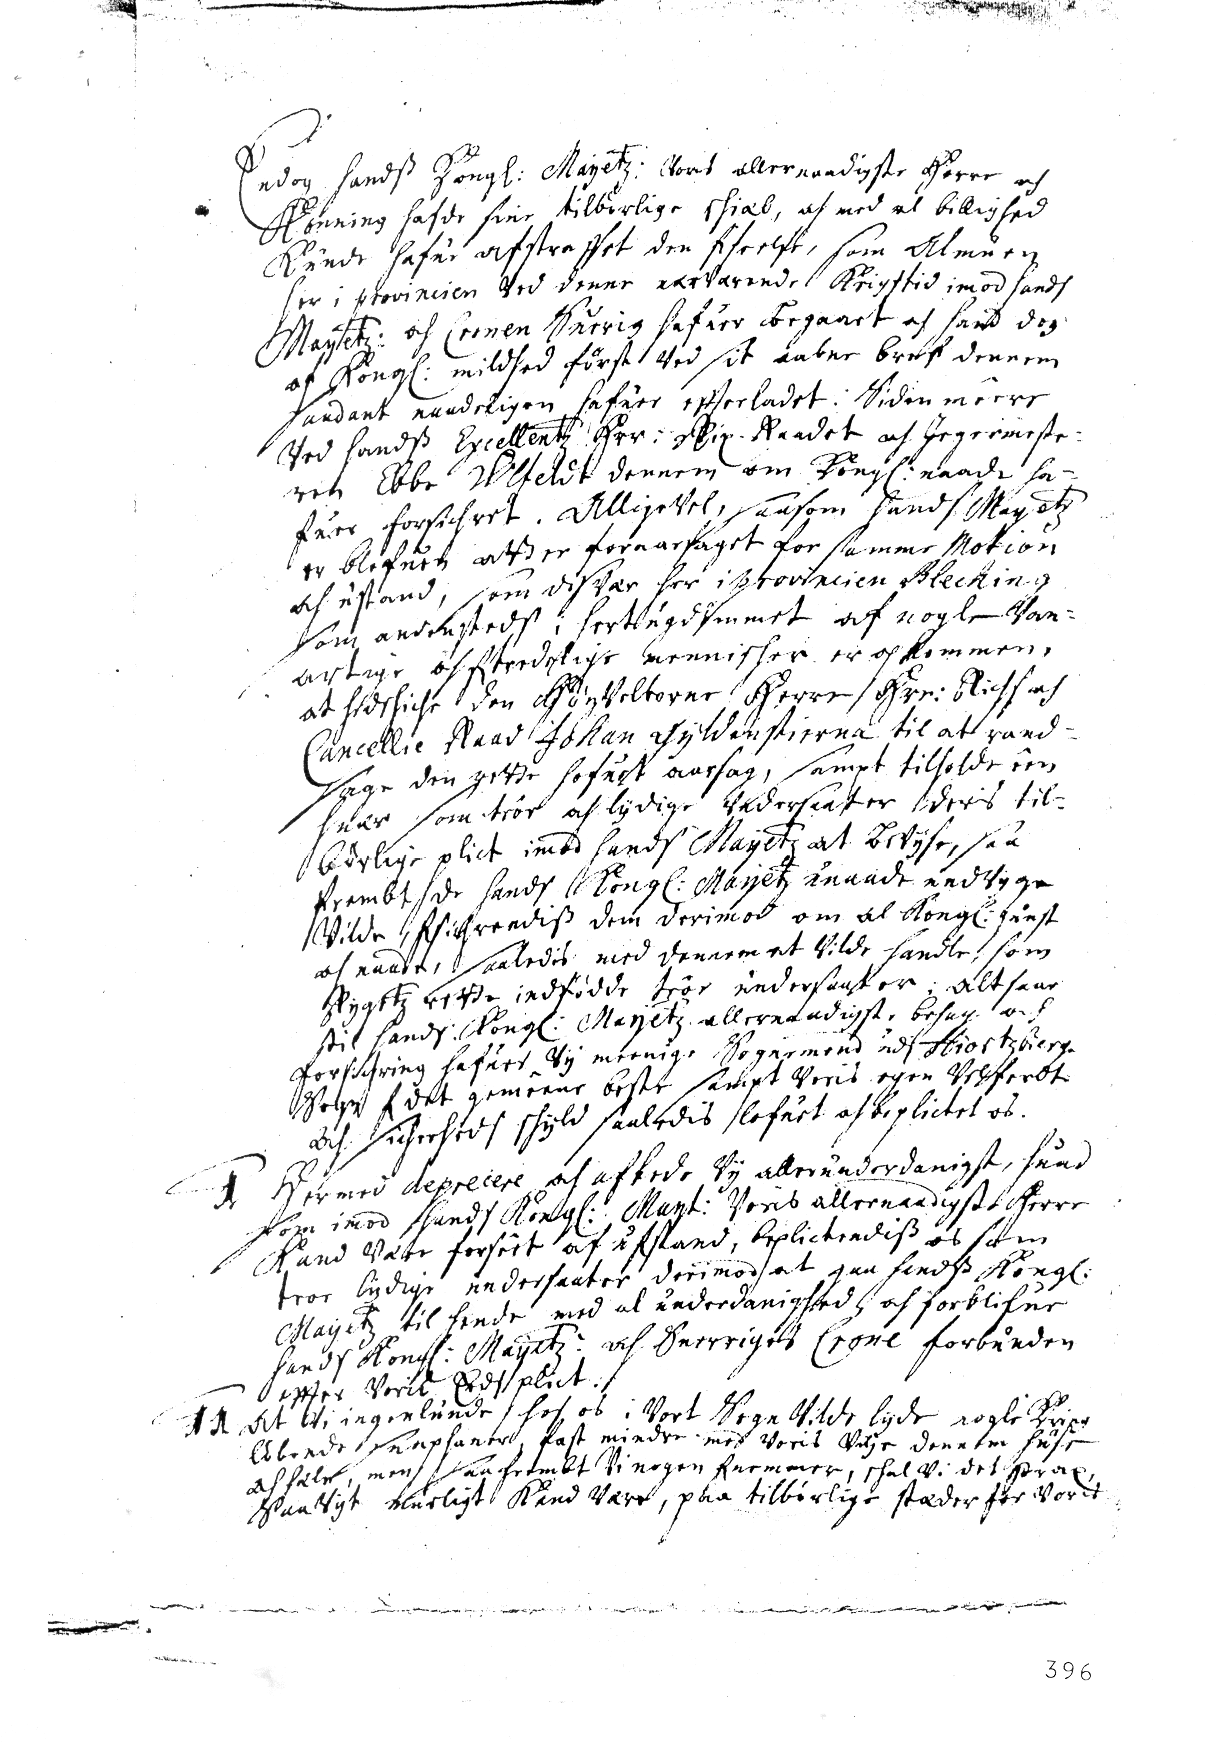 Endog handß Kongl: Mayetz: Voris allernaadigste Herre och
Konning hafde sine tilbörlige schiæl, och med al billighed
Kunde hafue afstraffet den feil, som Almuen
her i provincien Ved denne nærværende Krigstid imod hands
Mayetz: och Cronen Suerig hafuer begaaet och hand dog
af Kongl: mildhed först Ved sit aabne bref dennem
saadant naadeligen hafuer efterladet: Siden meere
Ved handß Excellentz Herr: Rix Raadet och Jegermeste-
ren Ebbe Ulfeldt dennem om Kongl: naade ha-
fuer forsichret. Alligevel, saasom hands Mayetz
er blefuen atter foraarsaget for samme Motion
och ustand, som disvær her i provincien Bleching
som andensteds i hertugdömmet af nogle Van-
artige och stredelige mennischer er opkommen,
at hidschiche den Höyvelborne Herre Hrr: Richs och
Cancellie Raad Johan Gyldenstierna til at rand-
sage den rette hofuet aarsag, sampt tilholde een
huær som troe och lydige Undersaater deris til-
börlige plict imod hands Mayetz at bevyse, saa
frembt de hands Kongl: Mayetz unaade undvyge
Vilde, forsichrendiß dem derimod om al Kongl: gunst
och naade, saaledis med dennem at Vilde handle, som
Rygetz rette indfödde troe undersaater; altsaa
til hands Kongl: Mayetz allernaadigste behag och
Forsichring hafuer Vy meenige Sognemend udj Hiortzberge
Sogn f det gemeene beste sampt Voris egen Velferdt
och sicherheds schyld saaledis lofuet och beplictet os.
1 Hermed deprecere och afbede Vy allerunderdanigst, huad
som imod hands Kongl: Mayt: Voris allernaadigste Herre
Kand Være forseet af ufstand, beplictendiß os som
troe lydige undersaater derimod at gaa handß Kongl:
Mayetz til hende med al underdanighed, och forblifue
hands Kongl: Mayetz: och Suerriges Crone forbunden
efter Voris Eeds plict.
11 At Vi ingenlunde hos os i Vort Sogn Vilde lyde nogle Kring
löbende snaphaner, fast mindre med Voris Vilje dennem huse
och hæle, men saafrembt Vi nogen fornemmer, schal Vi det strax,
saavyt mueligt Kand Være, paa tilbörlige stæder for Voris
396